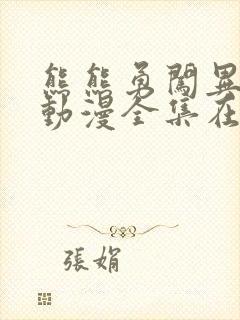 熊熊勇闖異
動漫全集在
張娟